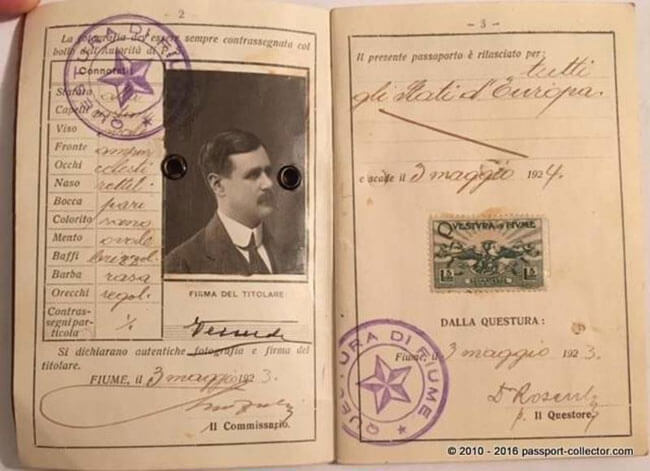 - 2 -
La fotografia dev'essere sempre contrassegnata col
bollo dell'Autorità di
Connotati
Statura
Capelli
Viso ovale
Fronte ampia
Occhi celesti
Naso rettil.
Bocca pari
Colorito sano
Mento ovale
Baffi
Barba rasa
Orecchi regol.
Contras-
segni par-
ticola
FIRMA DEL TITOLARE
Si dichiarano autentiche fotografia e firma del
titolare.
FIUME, il 3 maggio 1923.
Il Commissario.
QUESTURA DI FIUME
- 3 -
Il presente passaporto è rilasciato per: tutti
gli Stati d'Europa.
e scade il 3 maggio 1924.
QUESTURA DI FIUME
15 15
DALLA QUESTURA:
Fiume, il 3 maggio 1923.
p. Il Questore.
QUESTURA DI FIUME
© 2010 - 2016 passport-collector.com